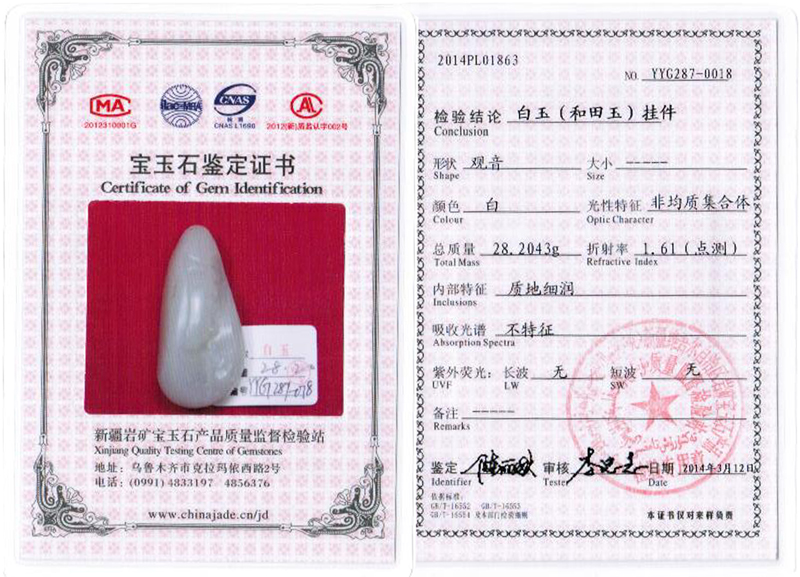 MA
2012310801G
ilac-MRA
CNAS
检测
CNAS L1698
AL
2012(新)质监认字002号
宝玉石鉴定证书
Certificate of Gem Identification
白玉
YYG287-018
新疆岩矿宝玉石产品质量监督检验站
Xinjiang Quality Testing Centre of Gemstones
地址：乌鲁木齐市克拉玛依西路2号
电话：(0991) 4833197 4856376
www.chinajade.cn/jd
2014PL01863
NO. YYG287-0018
检验结论 白玉(和田玉)挂件
Conclusion
形状 观音 大小 -----
Shape Size
颜色 白 光性特征 非均质集合体
Colour Optic Character
总质量 28.2043g 折射率 1.61(点测)
Total Mass Refractive Index
内部特征 质地细润
Inclusions
吸收光谱 不特征
Absorption Spectra
紫外荧光：长波 无 短波 无
UVF LW SW
备注 -----
Remarks
鉴定 审核 日期 2014年3月12日
Identifier Tester Date
依据标准：
GB/T-16552 GB/T-16553
GB/T-16554
本证书仅对来样负责